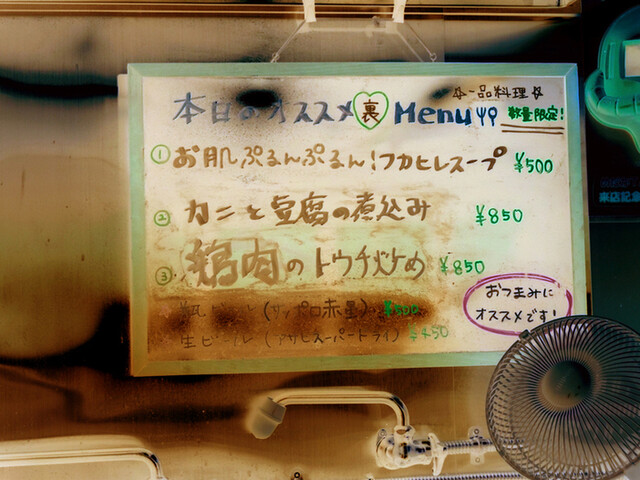 ☆一品料理☆
本日のオススメ 裏 Menu 数量限定!
① お肌ぷるんぷるん!フカヒレスープ ¥500
② カニと豆腐の煮込み ¥850
③ 鶏肉のトウチ炒め ¥850
瓶ビール(サッポロ赤星) ¥500
生ビール(アサヒスーパードライ) ¥450
おつまみに
オススメです!